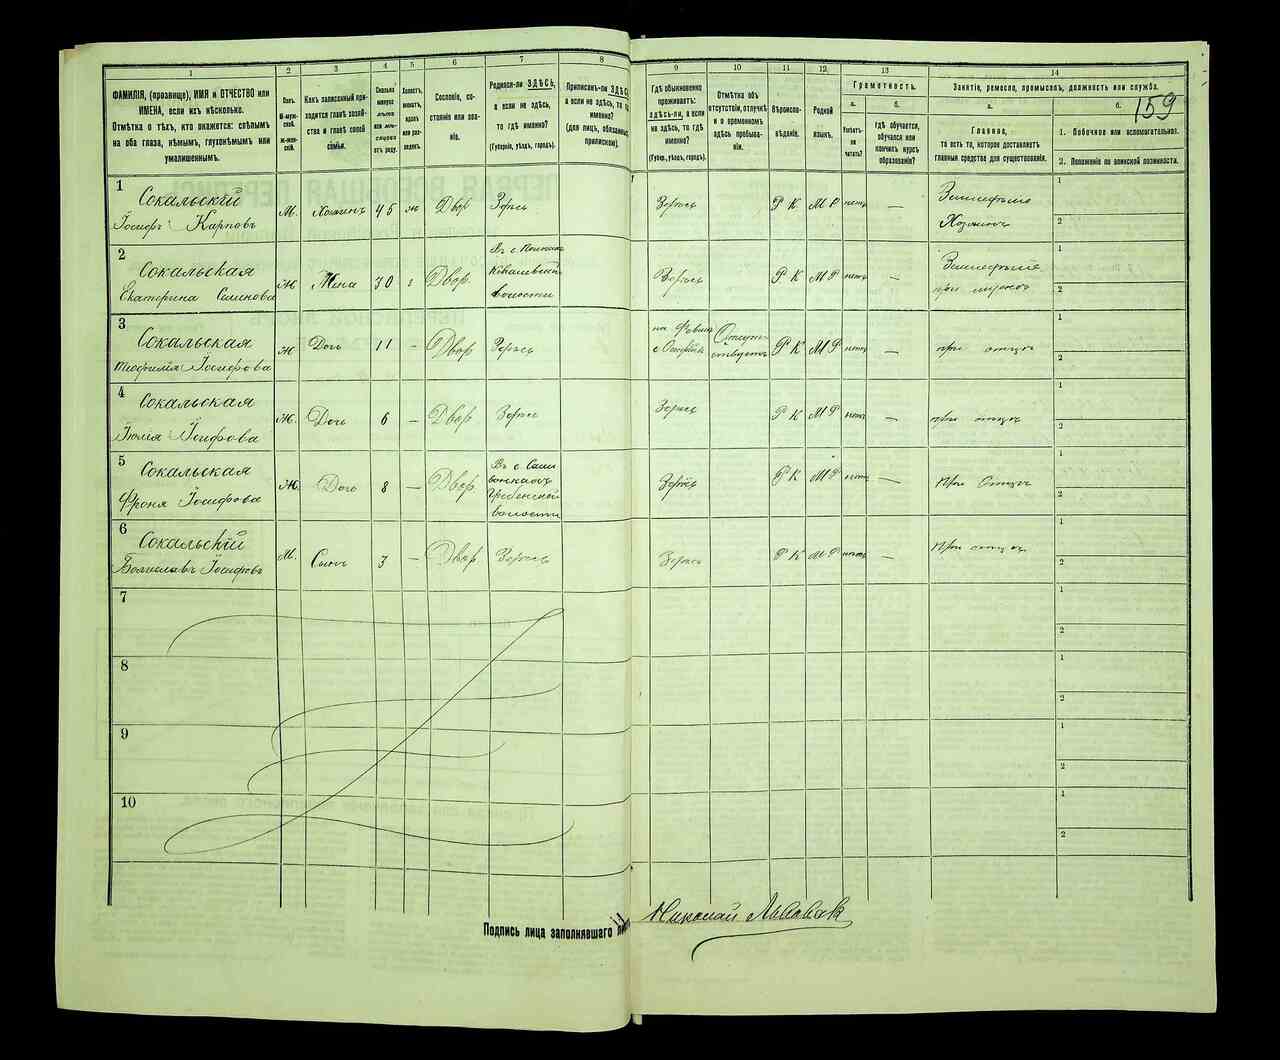 159
1
2
3
4
5
6
7
8
9
10
11
12
13
14
ФАМИЛІЯ, (прозвище), ИМЯ и ОТЧЕСТВО или
ИМЕНА, если ихъ нѣсколько.
Отмѣтка о тѣхъ, кто окажется: слѣпымъ
на оба глаза, нѣмымъ, глухонѣмымъ или
умалишеннымъ.
Полъ.
М-муж-
ской.
Ж-жен-
скій.
Какъ записанный при-
ходится главѣ хозяй-
ства и главѣ своей
семьи.
Сколько
минуло
лѣтъ
или мѣ-
сяцевъ
отъ роду.
Холостъ,
женатъ,
вдовъ
или раз-
веденъ.
Сословіе, со-
стояніе или зва-
ніе.
Родился-ли ЗДѢСЬ,
а если не здѣсь,
то гдѣ именно?
(Губернія, уѣздъ, городъ).
Приписанъ-ли ЗДѢСЬ,
а если не здѣсь, то гдѣ
именно?
(для лицъ, обязанныхъ
припиской).
Гдѣ обыкновенно
проживаетъ:
здѣсь-ли, а если
не здѣсь, то гдѣ
именно?
(Губерн., уѣздъ, городъ).
Отмѣтка объ
отсутствіи, отлучкѣ
и о временномъ
здѣсь пребыва-
ніи.
Вѣроиспо-
вѣданіе.
Родной
языкъ.
Грамотность.
а.
Умѣетъ-
ли
читать?
б.
гдѣ обучается,
обучался или
кончилъ курсъ
образованія?
Занятіе, ремесло, промыселъ, должность или служба.
а.
Главное,
то есть то, которое доставляетъ
главныя средства для существованія.
б.
1. Побочное или вспомогательное.
2. Положеніе по воинской повинности.
1
Сокальскій
Іосифъ Карповъ
М. Хозяинъ 45 ж Двор Здѣсь Здѣсь Р К М Р нетъ —
Хозяинъ
1
2
2
Сокальская
Екатерина Семинова
Ж Жена 30 Двор.
волости
Здѣсь Р К М Р нетъ —
1
2
3
Сокальская
Теофилія Іосифова
Ж Доч 11 - Двор Здѣсь
Отсут-
ствуетъ
Р К М Р нетъ — при отцѣ
1
2
4
Сокальская
Юлія Іосифова
Ж. Доч 6 - Двор Здѣсь Здѣсь Р К М Р нетъ — при отцѣ
1
2
5
Сокальская
Фроня Іосифова
Ж. Доч 8 - Двор.
Гребенской
волости
Здѣсь Р К М Р нетъ — При отцѣ
1
2
6
Сокальскій
Болеславъ Іосифовъ
М. Сынъ 3 - Двор Здѣсь Здѣсь Р К М Р нетъ - При отцѣ
1
2
7
1
2
8
1
2
9
1
2
10
1
2
Подпись лица заполнявшаго
Николай